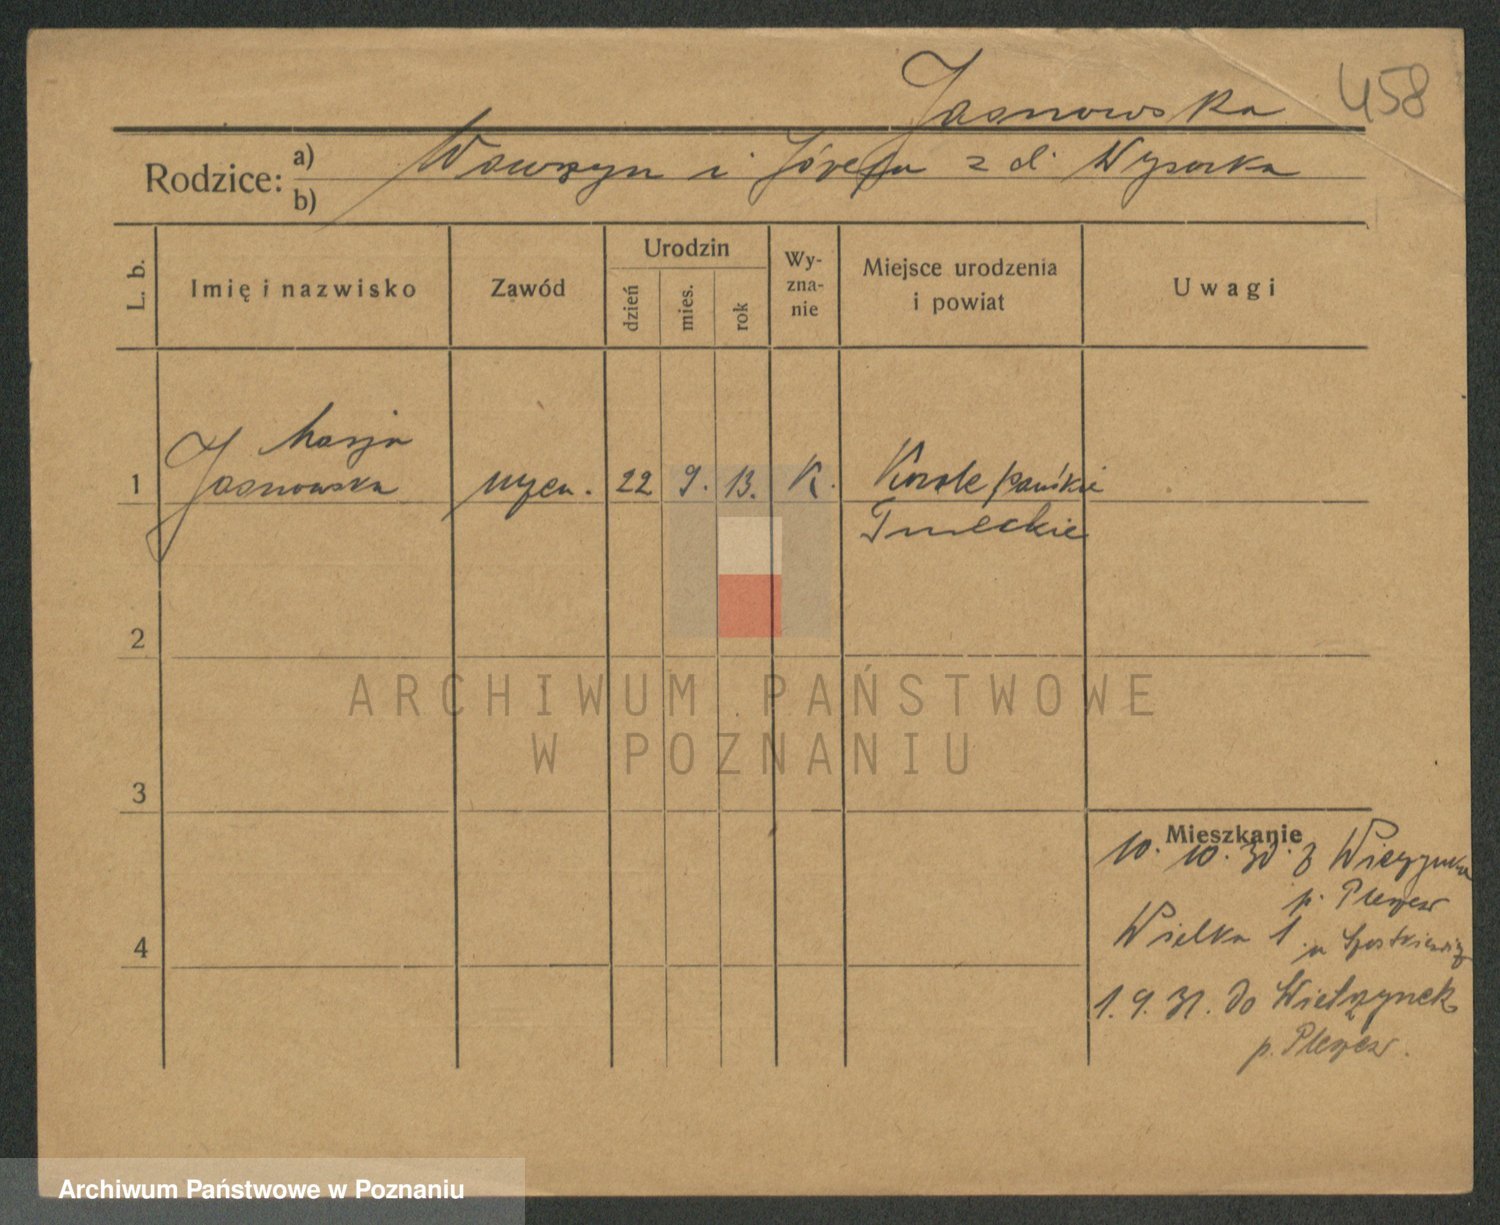 Jasnowska 458
Rodzice: a) Wawrzyn i Józefa z d. Wysocka
b)
L. b. Imię i nazwisko Zawód Urodzin dzień mies. rok Wyznanie Miejsce urodzenia i powiat Uwagi
Marja
1 Jasnowska uczen. 22 9. 13. K. pańskie
2
3
4
Mieszkanie
10. 10. 30. z
p. Pleszew
Wielka 1
1. 9. 31. do
p. Pleszew.
ARCHIWUM PAŃSTWOWE
W POZNANIU
Archiwum Państwowe w Poznaniu